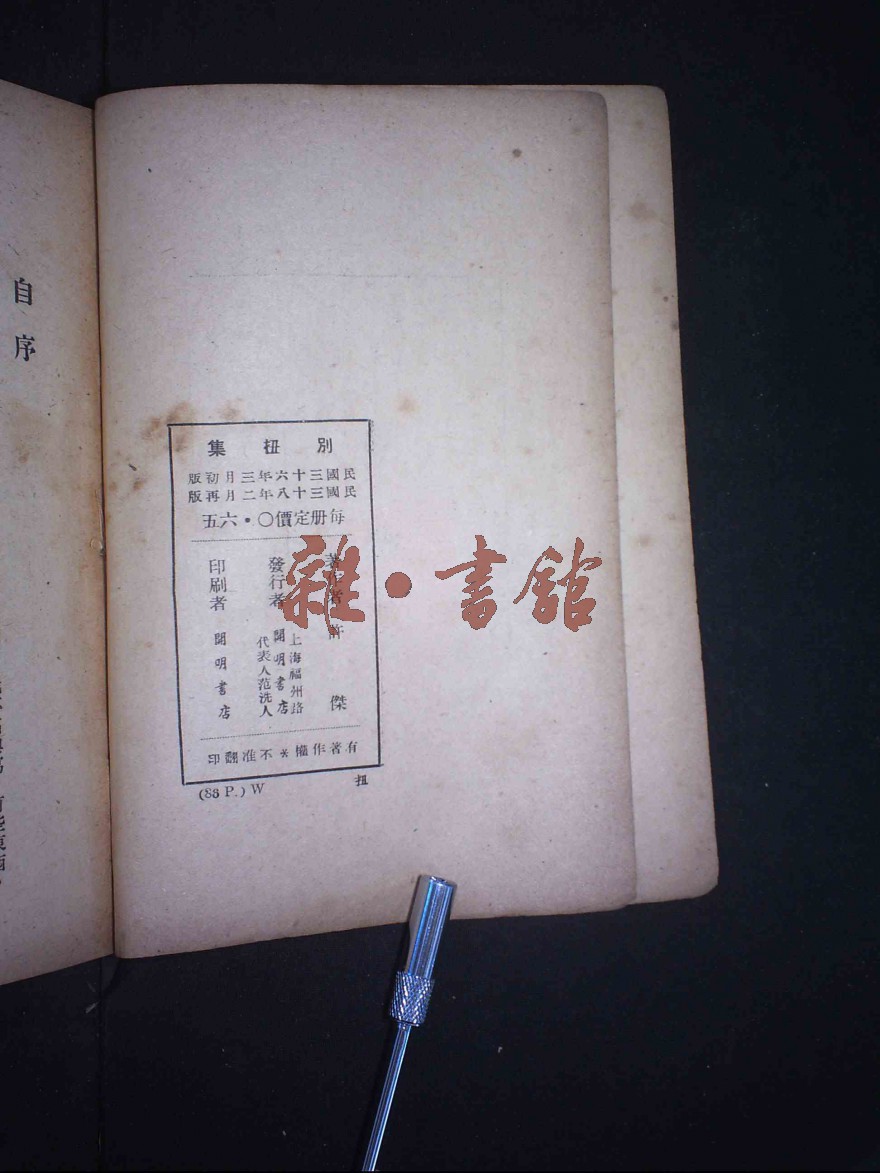 別扭集
民國三十六年三月初版
民國三十八年二月再版
每册定價〇・六五
著作者 許傑
發行者
上海福州路
開明書店
代表人范洗人
印刷者 開明書店
有著作權＊不准翻印
(88 P.) W 扭
自序
雜・書館